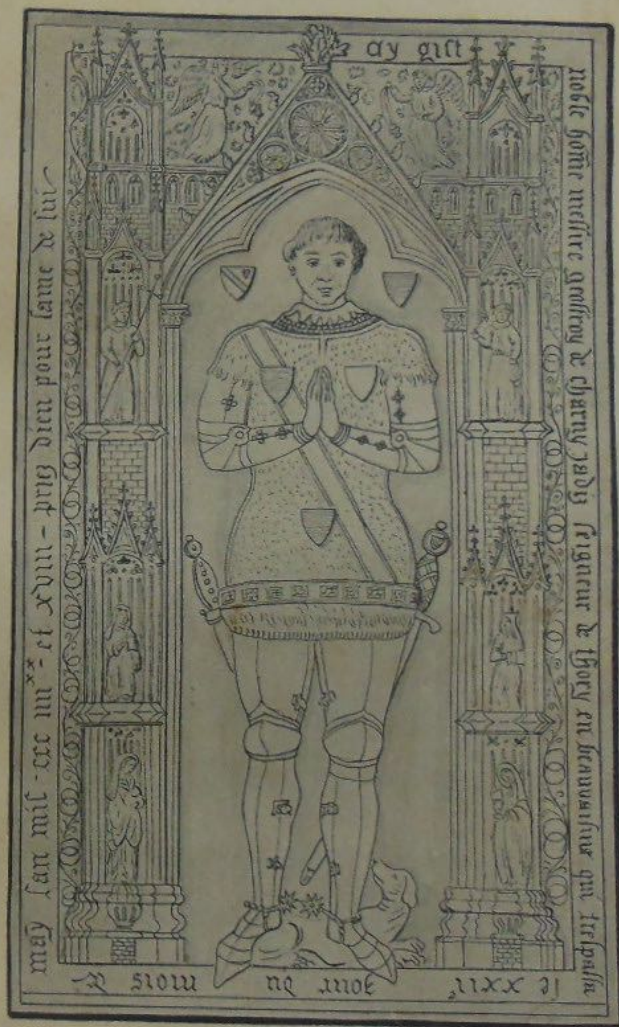 cy gist
noble home messire geoffroy de charny jadis seigneur de thory en beauvaisins qui trespassa
le xxii^e jour du mois de
may lan mil - ccc iiii^xx - et xviii - priez dieu pour lame de lui